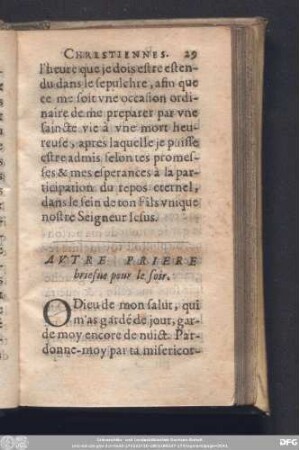 CHRESTIENNES. 29
l'heure que je dois estre esten-
du dans le sepulchre, afin que
ce me soit vne occasion ordi-
naire de me preparer par vne
saincte vie à vne mort heu-
reuse, apres laquelle je puisse
estre admis selon tes promes-
ses & mes esperances à la par-
ticipation du repos eternel,
dans le sein de ton Fils vnique
nostre Seigneur Iesus.
AVTRE PRIERE
briefue pour le soir.
O Dieu de mon salut, qui
m'as gardé de jour, gar-
de moy encore de nuict. Par-
donne-moy par ta misericor-